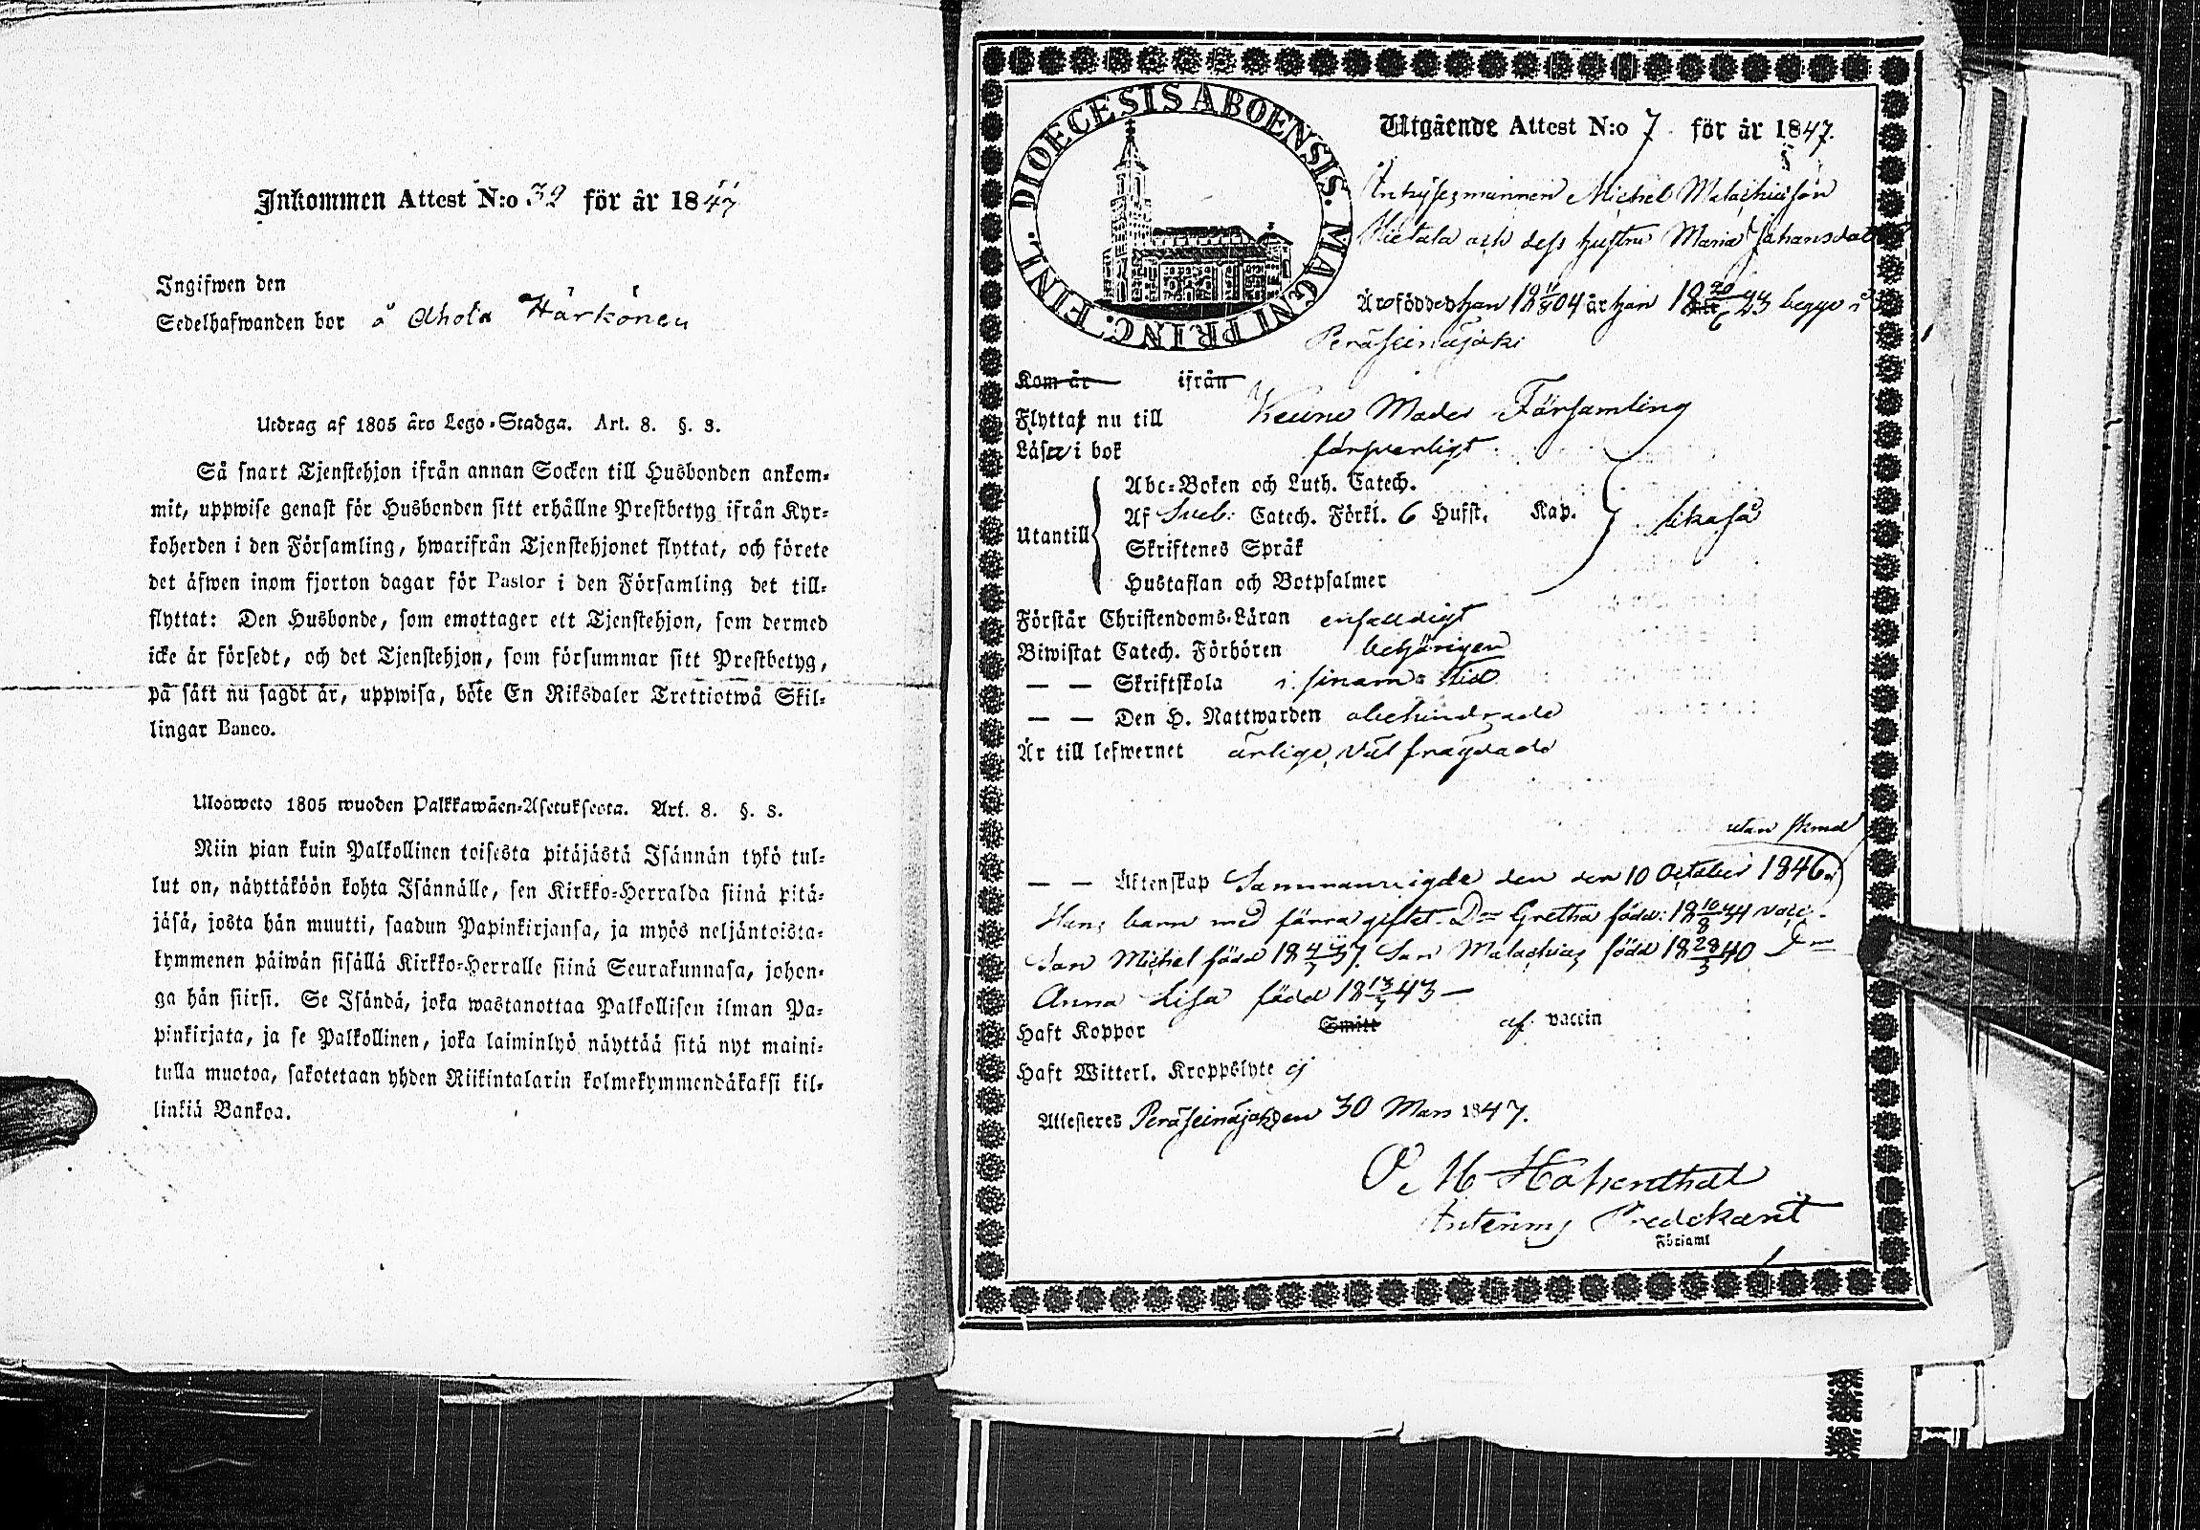 Inkommen Attest N:o 32 för år 1847
Ingifwen den
Sedelhafwanden bor å Ahola Härkönen
Utdrag af 1805 års Lego-Stadga. Art. 8. §. 3.
Så snart Tjenstehjon ifrån annan Socken till Husbonden ankom-
mit, uppwise genast för Husbonden sitt erhållne Prestbetyg ifrån Kyr-
koherden i den Församling, hwarifrån Tjenstehjonet flyttat, och förete
det äfwen inom fjorton dagar för Pastor i den Församling det till-
flyttat: Den Husbonde, som emottager ett Tjenstehjon, som dermed
icke är försedt, och det Tjenstehjon, som försummar sitt Prestbetyg,
på sätt nu sagdt är, uppwisa, böte En Riksdaler Trettiotwå Skil-
lingar Banco.
Uloswето 1805 wuoden Palkkawäen-Asetuksesta. Art. 8. §. 3.
Niin pian kuin Palkollinen toisesta pitäjästä Isännän tykö tul-
lut on, näyttäköön kohta Isännälle, sen Kirkko-Herralda siinä pitä-
jäsä, josta hän muutti, saadun Papinkirjansa, ja myös neljäntoista-
kymmenen päiwän sisällä Kirkko-Herralle siinä Seurakunnasa, johon-
ga hän siirsi. Se Isändä, joka wastanottaa Palkollisen ilman Pa-
pinkirjata, ja se Palkollinen, joka laiminlyö näyttää sitä nyt maini-
tulla muotoa, sakotetaan yhden Riikintalarin kolmekymmendäkaksi kil-
linkiä Bankoa.
DIOECESIS ABOENSIS. MAGNI PRINC. FINL.
Utgående Attest N:o 7. för år 1847.
Inhysesmannen Michel Malachiasson
Hietala och dess hustru Maria Johansdot
Äro födde han 18 11/8 04 är hon 18 20/6 23 begge i
Peräseinäjoki
Kom år ifrån
Flyttat nu till Församling
Läsa i bok försvarligt
Utantill
Abc-Boken och Luth. Catech.
Af Sveb: Catech. Förkl. 6 Hufst. Kap.
Skriftenes Språk
Hustaflan och Botpsalmer
likaså
Förstår Christendoms-Läran enfaldigt
Biwistat Catech. Förhören behörigen
— — Skriftskola i sinom tid
— — Den H. Nattwarden obehindrade
Är till lefwernet ärlige, väl frägdade
utan
— — Äktenskap Sammanvigde den 10 October 1846
Hans barn med förra giftet. Dr Gretha född: 18 10/8 34
Son Michel född 18 4/7 37. Son Malachias född 18 28/3 40 Dr
Anna Lisa född 18 13/7 43 —
Haft Koppor Smitt af vaccin
Haft Witterl. Kroppslyte ej
Attesteres Peräseinäjoki den 30 Mars 1847.
Predikant
Församl